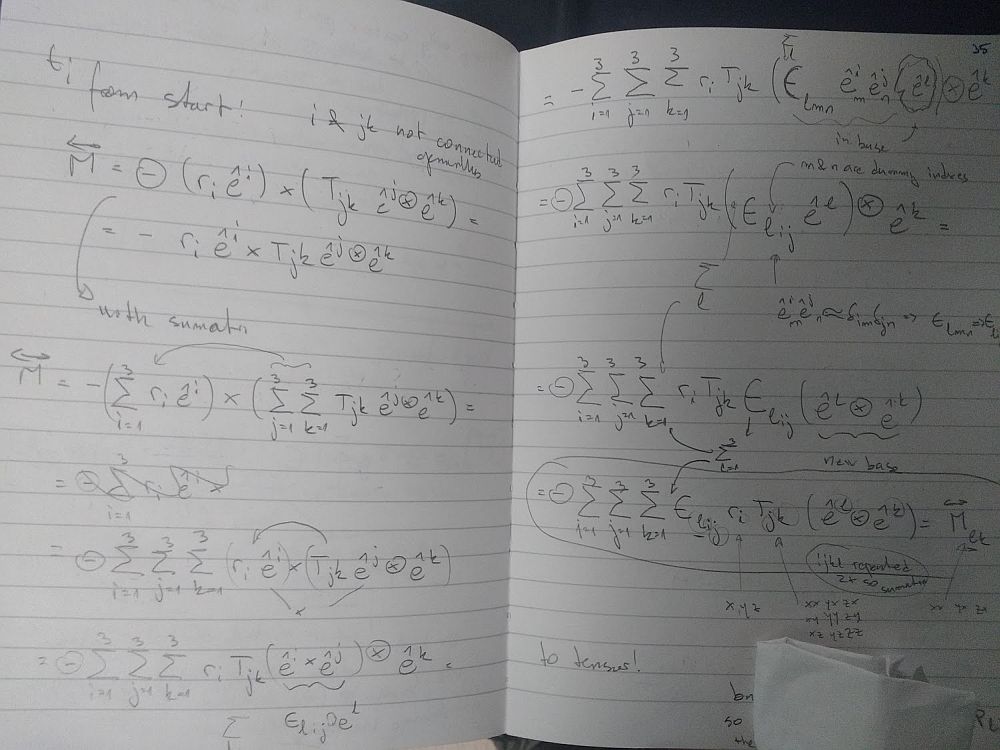 t_i from start!
i & jk not connected
M⃡ = ⊖ (r_i ê^i) × (T_jk ê^j ⊗ ê^k) =
= - r_i ê^i × T_jk ê^j ⊗ ê^k
with
M⃡ = -(∑_{i=1}^3 r_i ê^i) × (∑_{j=1}^3 ∑_{k=1}^3 T_jk ê^j ⊗ ê^k) =
= ⊖ ∑_{i=1}^3 r_i ê^i ×
= ⊖ ∑_{i=1}^3 ∑_{j=1}^3 ∑_{k=1}^3 (r_i ê^i) × (T_jk ê^j ⊗ ê^k)
= ⊖ ∑_{i=1}^3 ∑_{j=1}^3 ∑_{k=1}^3 r_i T_jk (ê^i × ê^j) ⊗ ê^k =
∑_l ϵ_lij e^l
35
= - ∑_{i=1}^3 ∑_{j=1}^3 ∑_{k=1}^3 r_i T_jk (ϵ_lmn ê^i_m ê^j_n ê^l) ⊗ ê^k
in base
m & n are dummy indices
= ⊖ ∑_{i=1}^3 ∑_{j=1}^3 ∑_{k=1}^3 r_i T_jk (ϵ_lij ê^l) ⊗ ê^k =
∑_l
ê^i_m ê^j_n ≈ δ_im δ_jn => ϵ_lmn =>
= ⊖ ∑_{i=1}^3 ∑_{j=1}^3 ∑_{k=1}^3 r_i T_jk ϵ_lij (ê^l ⊗ ê^k)
∑_{l=1}^3
new base
= ⊖ ∑_{i=1}^3 ∑_{j=1}^3 ∑_{k=1}^3 ϵ_lij r_i T_jk (ê^l ⊗ ê^k) = M⃡_lk
repeated
2x so
x y z
xx yx zx
xy yy zy
xz yz zz
xx yx zx
to tensor!
so
the